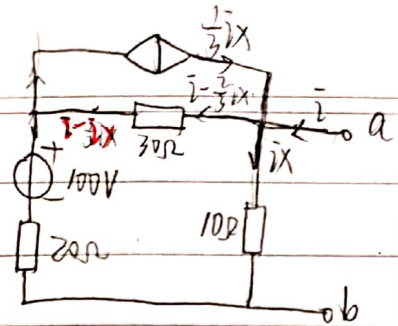 1/3 ix
i-2/3 ix
i
a
i-ix
30Ω
ix
+
100V
-
10Ω
20Ω
b